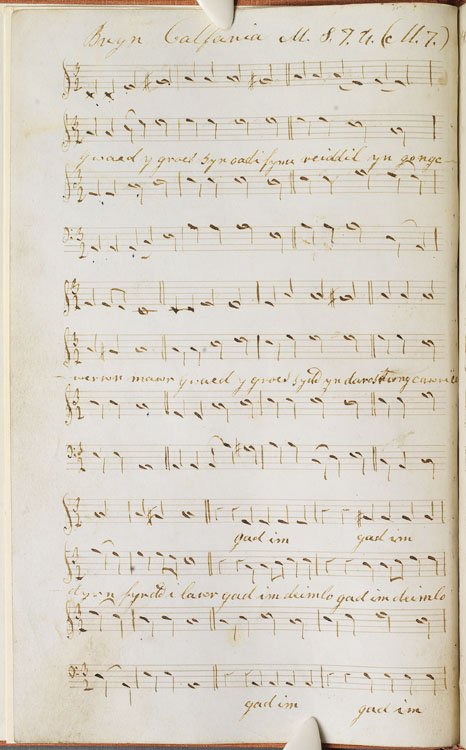 Bryn Calfaria M. 8.7.4. (M.7.)
gwaed y groes syn codi fynu reiddil yn gongc
werwr mawr gwaed y groes sydd yn darostwng
gad im gad im
dyrn fyrdd i lawr gad im deimlo gad im deimlo
gad im gad im